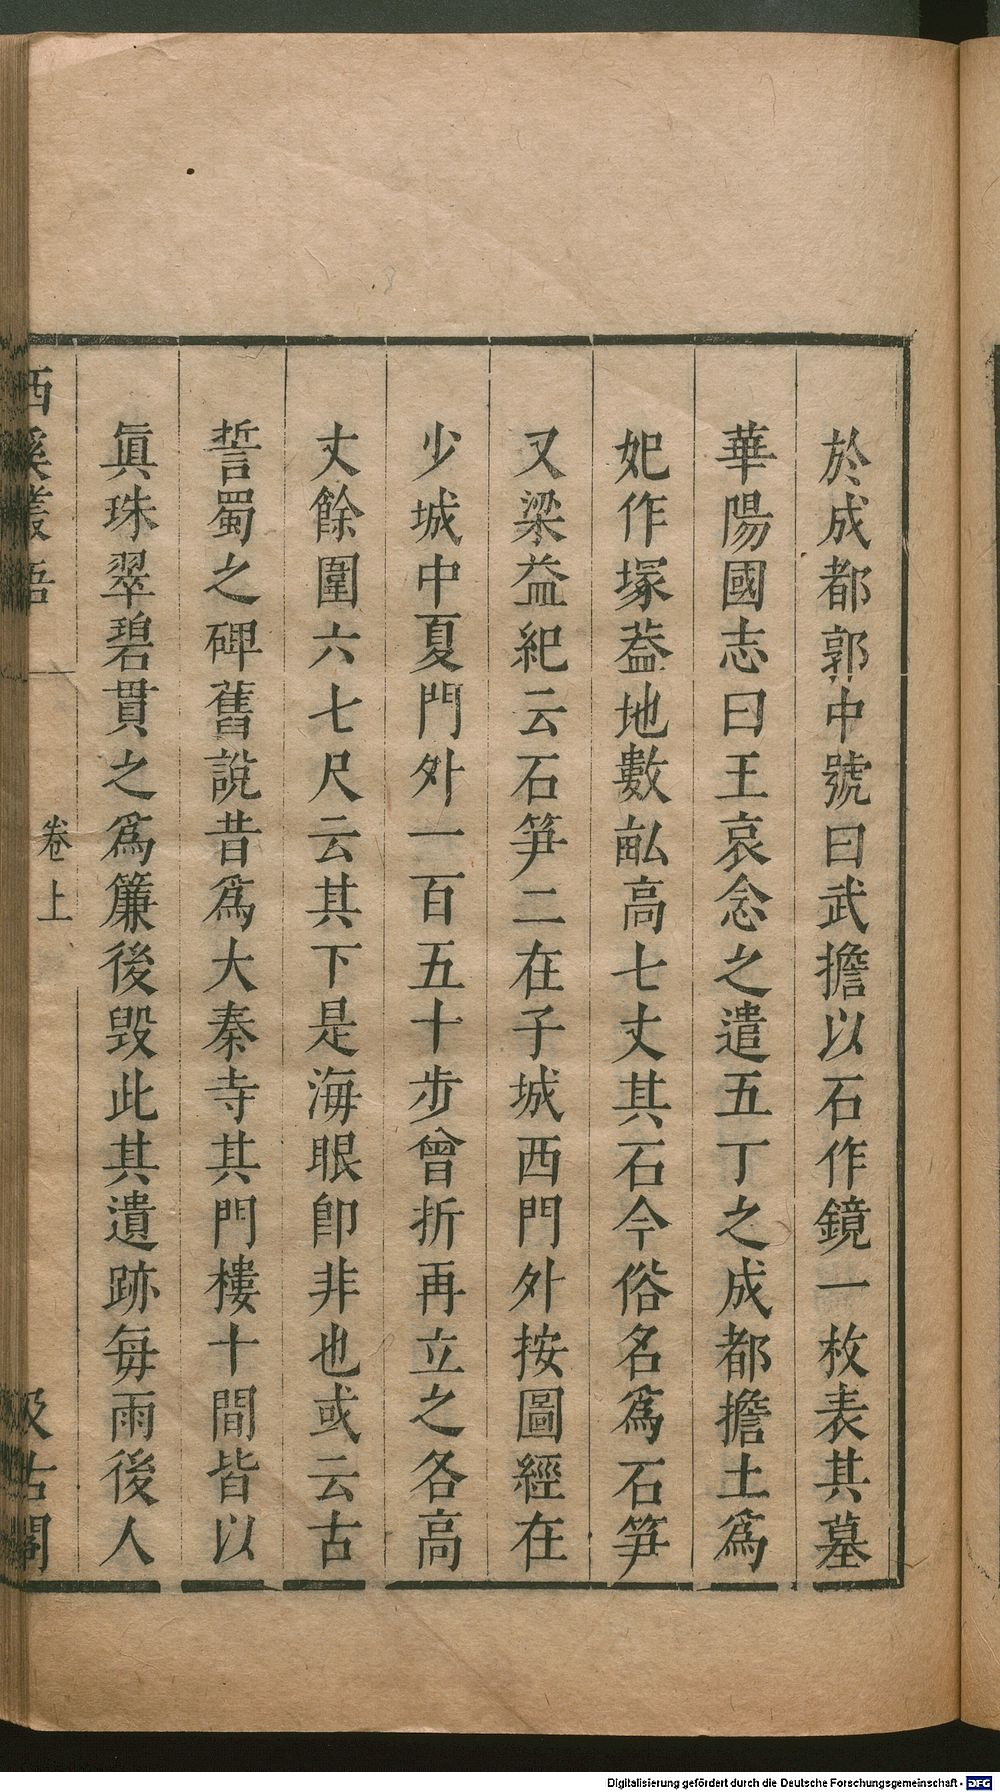 於成都郭中號曰武擔以石作鏡一枚表其墓
華陽國志曰王哀念之遣五丁之成都擔土爲
妃作塚葢地數畝高七丈其石今俗名爲石笋
又梁益紀云石笋二在子城西門外按圖經在
少城中夏門外一百五十步曾折再立之各高
丈餘圍六七尺云其下是海眼卽非也或云古
誓蜀之碑舊說昔爲大秦寺其門樓十間皆以
眞珠翠碧貫之爲簾後毀此其遺跡每雨後人
西溪叢語 卷上 汲古閣
Digitalisierung gefördert durch die Deutsche Forschungsgemeinschaft - DFG